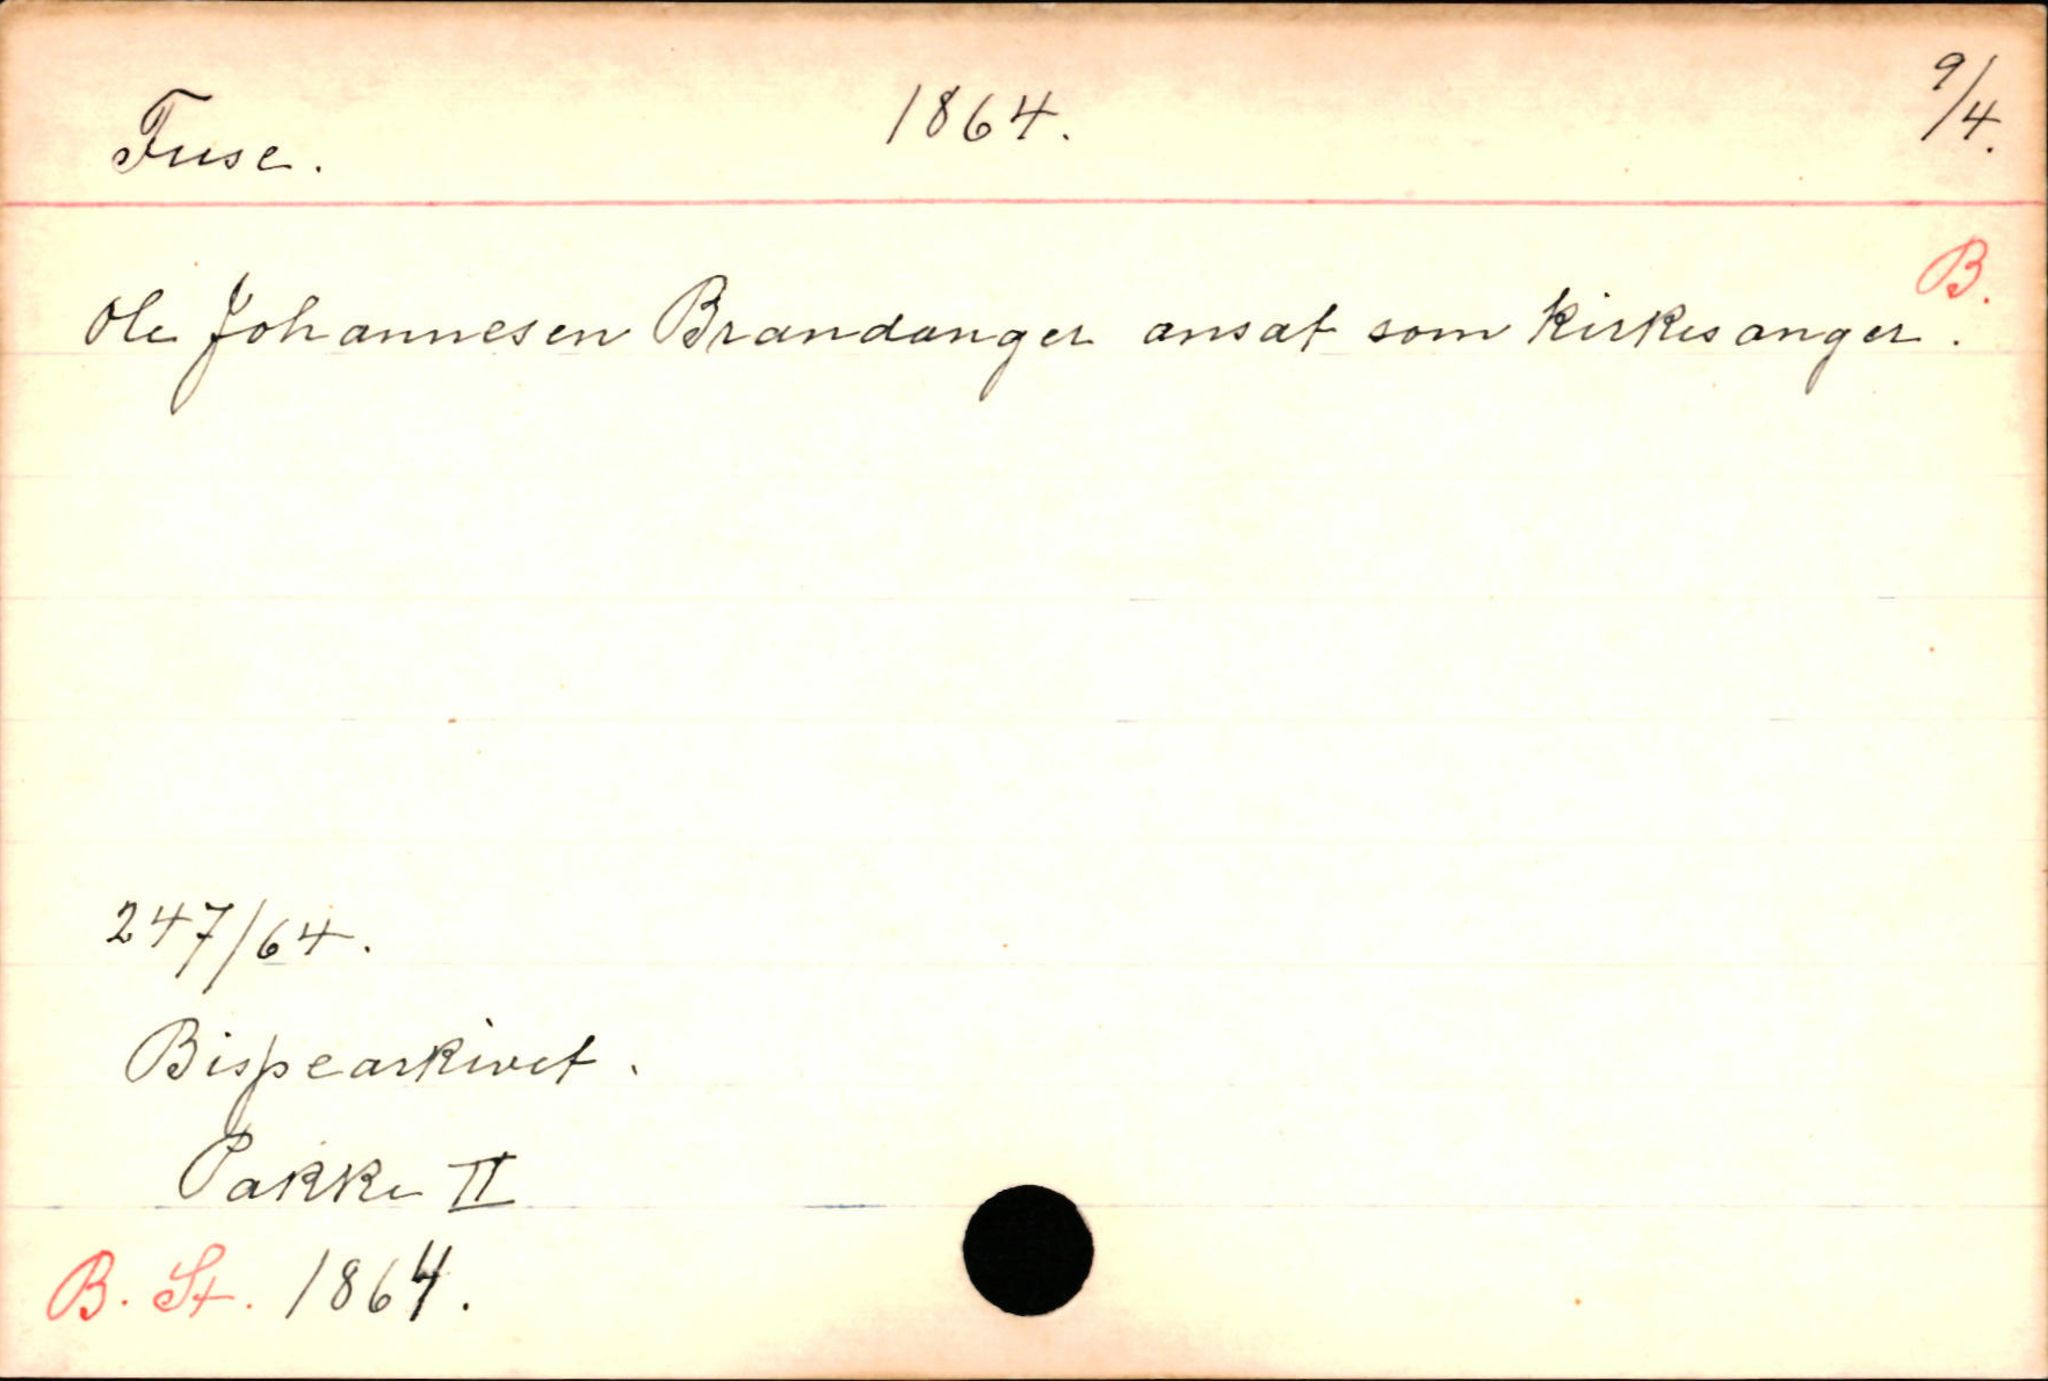 Fuse. 1864. 9/4.
B.
Ole Johannesen Brandanger ansat som kirkesanger.
247/64.
Bispearkivet.
Pakke II
B. St. 1864.